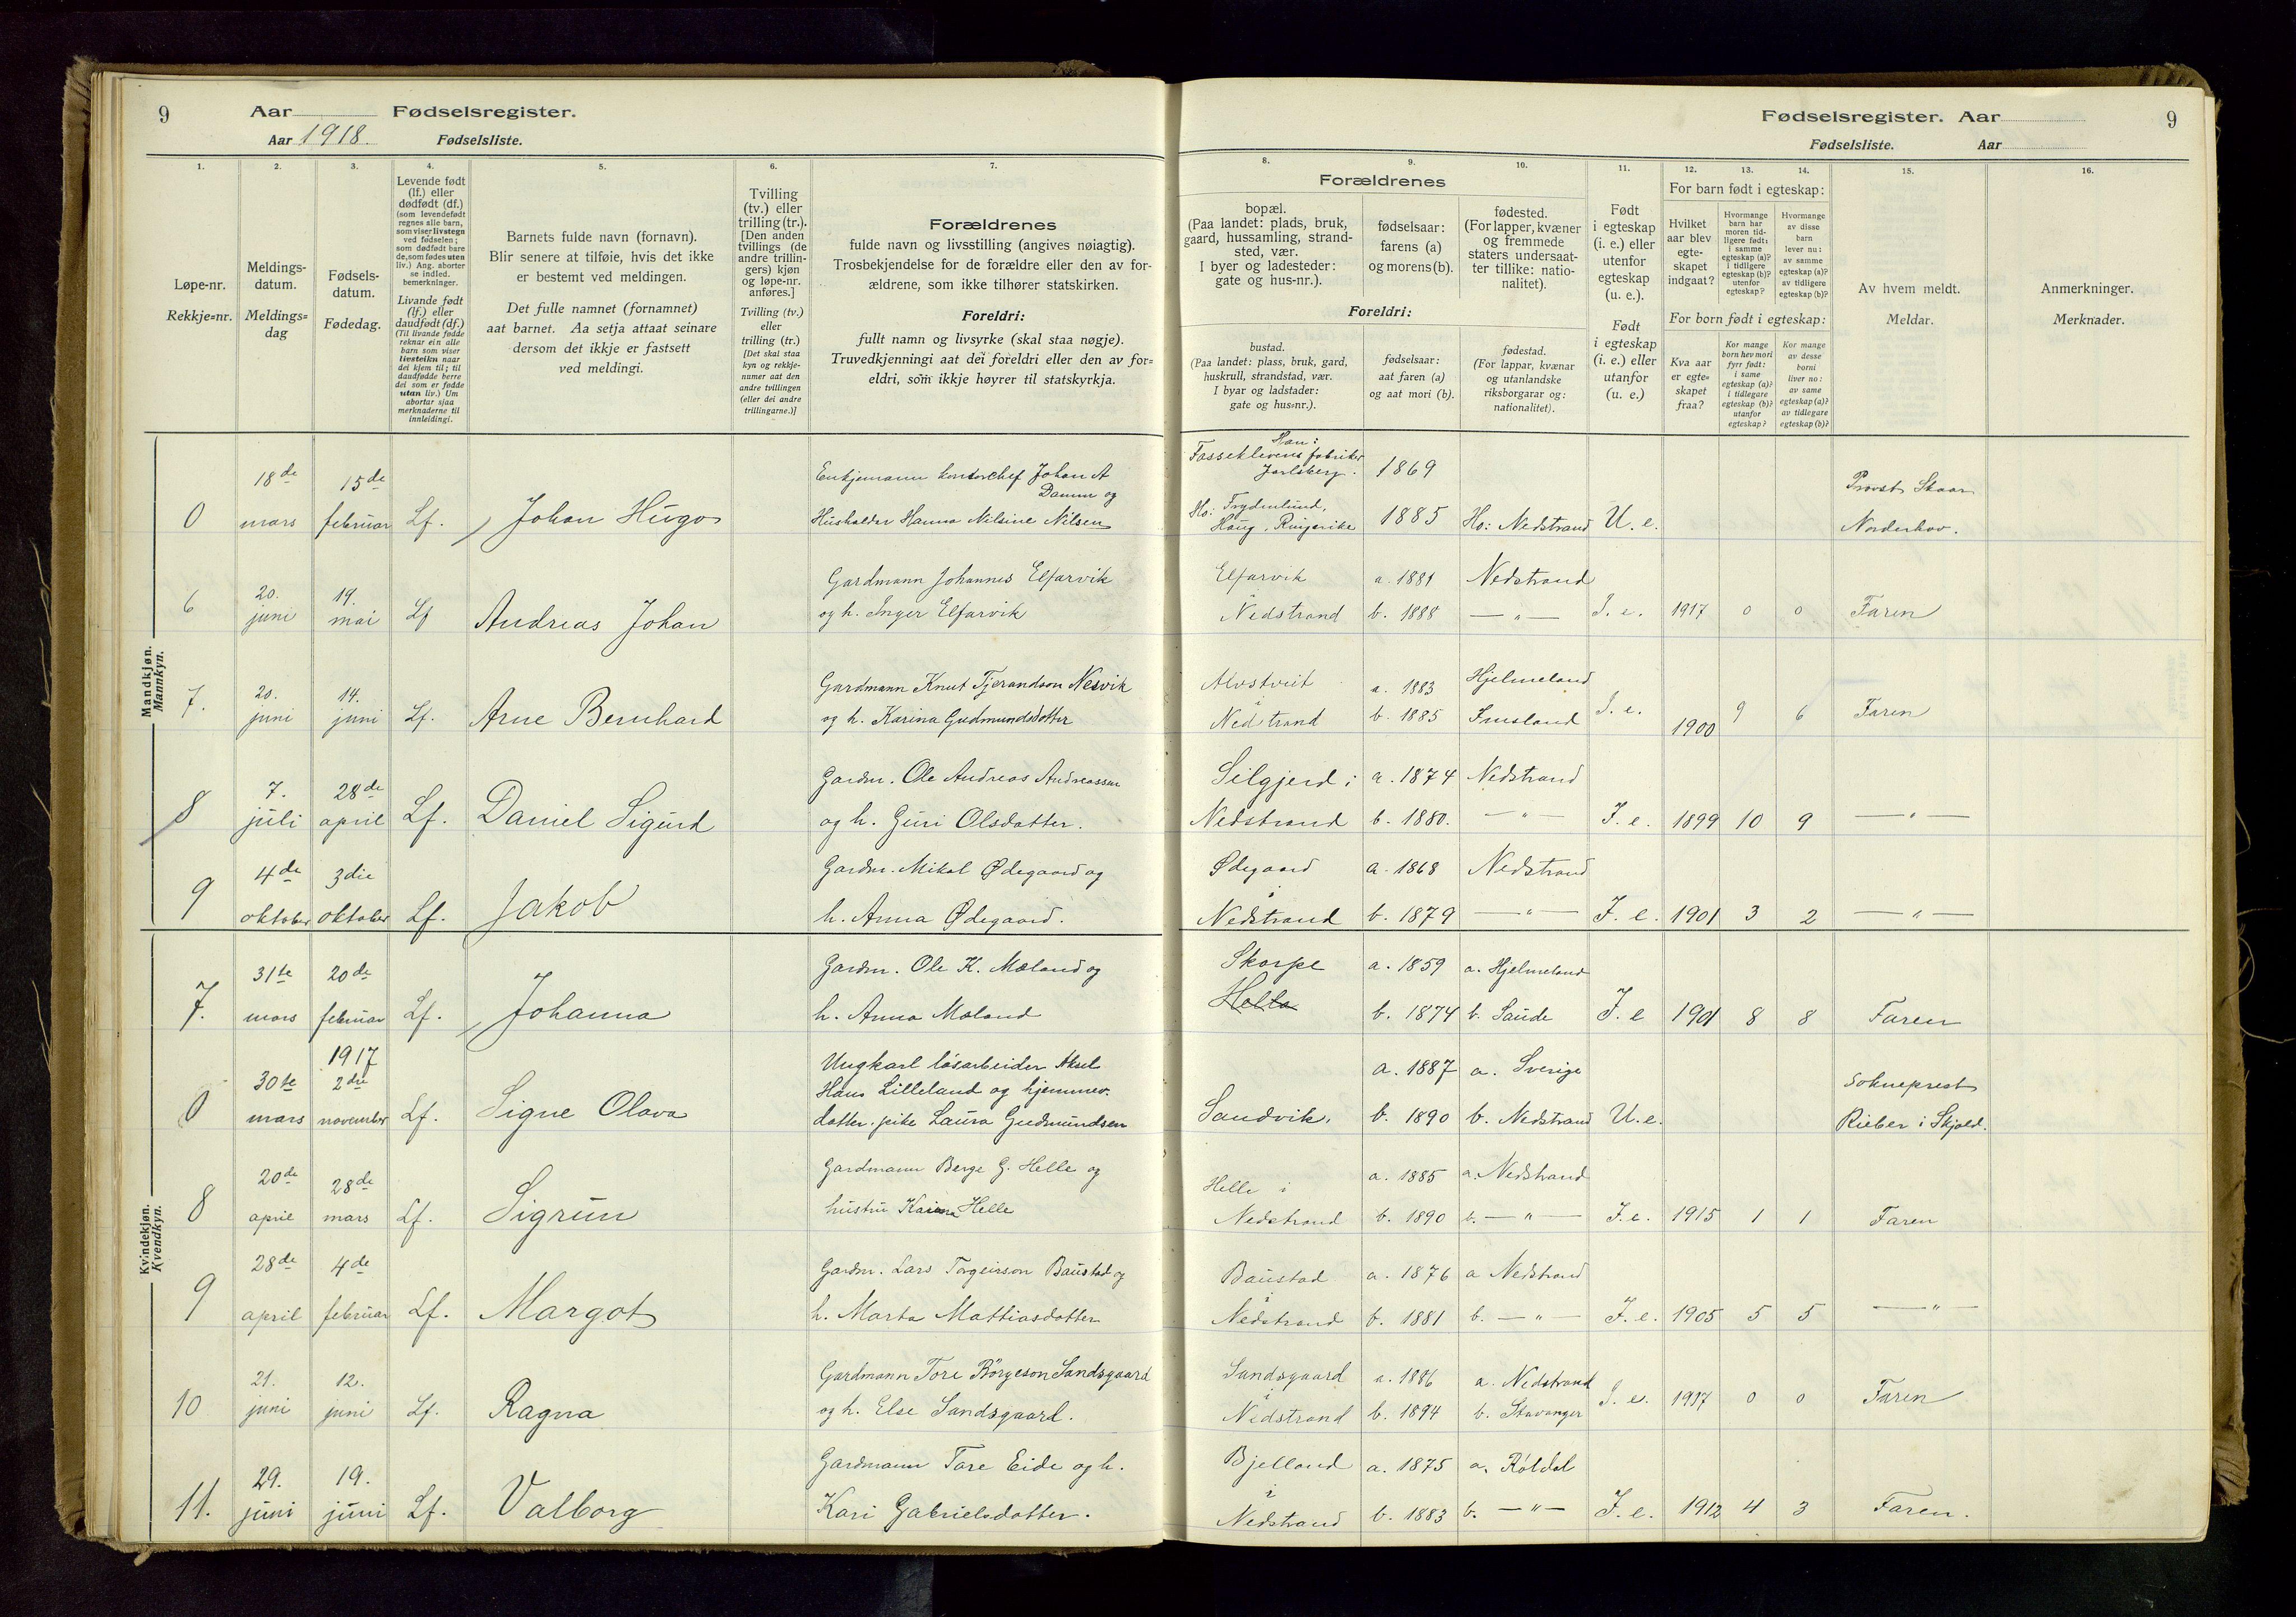 9 Aar Fødselsregister.
Aar 1918. Fødselsliste.
1. 2. 3. 4. 5. 6. 7.
Løpe-nr.
Rekkje=nr.
Meldings-
datum.
Meldings=
dag
Fødsels-
datum.
Fødedag.
Levende født
(lf.) eller
dødfødt (df.)
(som levendefødt
regnes alle barn,
som viser livstegn
ved fødselen;
som dødfødt bare
de, som fødes uten
liv.) Ang. aborter
se indled.
bemerkninger.
Livande født
(lf.) eller
daudfødt (df.)
(Til livande fødde
reknar ein alle
barn som viser
livsteikn naar
dei kjem til; til
daudfødde berre
dei som er fødde
utan liv.) Um
abortar sjaa
merknaderne til
innleidingi.
Barnets fulde navn (fornavn).
Blir senere at tilføie, hvis det ikke
er bestemt ved meldingen.
Det fulle namnet (fornamnet)
aat barnet. Aa setja attaat seinare
dersom det ikkje er fastsett
ved meldingi.
Tvilling
(tv.) eller
trilling (tr.).
[Den anden
tvillings (de
andre trillin-
gers) kjøn
og løpe-nr.
anføres.]
Tvilling (tv.)
eller
trilling (tr.)
[Det skal staa
kyn og rekkje-
numer aat den
andre tvillingen
(eller dei andre
trillingarne.)]
Forældrenes
fulde navn og livsstilling (angives nøiagtig).
Trosbekjendelse for de forældre eller den av for-
ældrene, som ikke tilhører statskirken.
Foreldri:
fullt namn og livsyrke (skal staa nøgje).
Truvedkjenningi aat dei foreldri eller den av for=
eldri, som ikkje høyrer til statskyrkja.
Fødselsregister. Aar 9
Fødselsliste. Aar
8. 9. 10. 11. 12. 13. 14. 15. 16.
Forældrenes
bopæl.
(Paa landet: plads, bruk,
gaard, hussamling, strand-
sted, vær.
I byer og ladesteder:
gate og hus-nr.).
fødselsaar:
farens (a)
og morens (b).
fødested.
(For lapper, kvæner
og fremmede
staters undersaat-
ter tillike: natio-
nalitet).
Foreldri:
bustad.
(Paa landet: plass, bruk, gard,
huskrull, strandstad, vær.
I byar og ladstader:
gate og hus=nr.).
fødselsaar:
aat faren (a)
og aat mori (b).
fødestad.
(For lappar, kvænar
og utanlandske
riksborgarar og:
nationalitet).
Født
i egteskap
(i. e.) eller
utenfor
egteskap
(u. e.).
Født
i egteskap
(i. e.) eller
utanfor
(u. e.)
For barn født i egteskap:
Hvilket
aar blev
egte-
skapet
indgaat?
Hvormange
barn har
moren tid-
ligere født:
i samme
egteskap (a)?
i tidligere
egteskap (b)?
utenfor
egteskap?
Hvormange
av disse
barn
lever nu:
av samme
egteskap (a)?
av tidligere
egteskap (b)?
For born født i egteskap:
Kva aar
er egte=
skapet
fraa?
Kor mange
born hev mori
fyrr født:
i same
egteskap (a)?
i tidlegare
egteskap (b)?
utanfor
egteskap?
Kor mange
av desse
borni
liver no:
av same
egteskap (a)?
av tidlegare
egteskap (b)?
Av hvem meldt.
Meldar.
Anmerkninger.
Merknader.
Mandkjøn.
Mannkyn.
0 18de mars 15de februar Lf. Johan Hugo
Enkjemann kontorchef Johan A
Damm og
Husholder Hanna Nilsine Nilsen
Han:
Fosseklevens fabriker
Jarlsberg. 1869
Ho: Frydenlund,
Haug, Ringerike 1885 Ho: Nedstrand U. e.
Provst Skaar
Norderhov.
6 20. juni 19. mai Lf Andreas Johan
Gardmann Johannes Elfarvik
og h. Inger Elfarvik
Elfarvik a. 1881 Nedstrand
Nedstrand b. 1888 — „ — I. e. 1917 0 0 Faren
7. 20. juni 14. juni Lf. Arne Bernhard
Gardmann Knut Tjerandson Nesvik
og h. Karina Gudmundsdotter
Alvstveit a. 1883 Hjelmeland
i
Nedstrand b. 1885 Imsland I. e. 1900 9 6 Faren
8 7. juli 28de april Lf. Daniel Sigurd
Gardm. Ole Andreas Andreassen
og h. Guri Olsdotter.
Silgjerd i a. 1874 Nedstrand
Nedstrand b. 1880. — „ — I. e. 1899 10 9 — „ —
9 4de oktober 3die oktober Lf. Jakob
Gardm. Mikal Ødegaard og
h. Anna Ødegaard.
Ødegaard a. 1868 Nedstrand
i
Nedstrand b. 1879 — „ — I. e. 1901 3 2 — „ —
Kvindekjøn.
Kvendkyn.
7. 31te mars 20de februar Lf. Johanna
Gardm. Ole K. Mæland og
h. Anna Mæland
Skorpe a. 1859 a. Hjelmeland
Hella b. 1874 b. Saude I. e 1901 8 8 Faren
0 30te mars 1917 2dre november Lf. Signe Olava
Ungkarl løsarbeider Aksel
Hans Lilleland og hjemmev.
datter. pike Laura Gudmundsen
a. 1887 a. Sverige
Sandvik. b. 1890 b. Nedstrand U. e.
Sokneprest
Rieber i Skjold.
8 20de april 28de mars Lf. Sigrun
Gardmann Berge G. Helle og
hustru Kaia Helle
Helle i a. 1885 a. Nedstrand
Nedstrand b. 1890 b. — „ — I. e. 1915 1 1 Faren
9 28de april 4de februar Lf. Margot
Gardm. Lars Torgeirson Baustad og
h. Marta Mattiasdotter
Baustad a. 1876 a Nedstrand
i
Nedstrand b. 1881 b. — „ — I. e. 1905 5 5 — „ —
10 21. juni 12. juni Lf. Ragna
Gardmann Tore Börgeson Sandsgaard
og h. Else Sandsgaard.
Sandsgaard a. 1886 a. Nedstrand
i
Nedstrand b. 1894 b. Stavanger I. e. 1917 0 0 Faren
11. 29. juni 19. juni Lf. Valborg
Gardmann Tore Eide og h.
Kari Gabrielsdotter.
Bjelland a. 1875 a. Röldal
i
Nedstrand b. 1883 b. — „ — I. e. 1912 4 3 Faren.